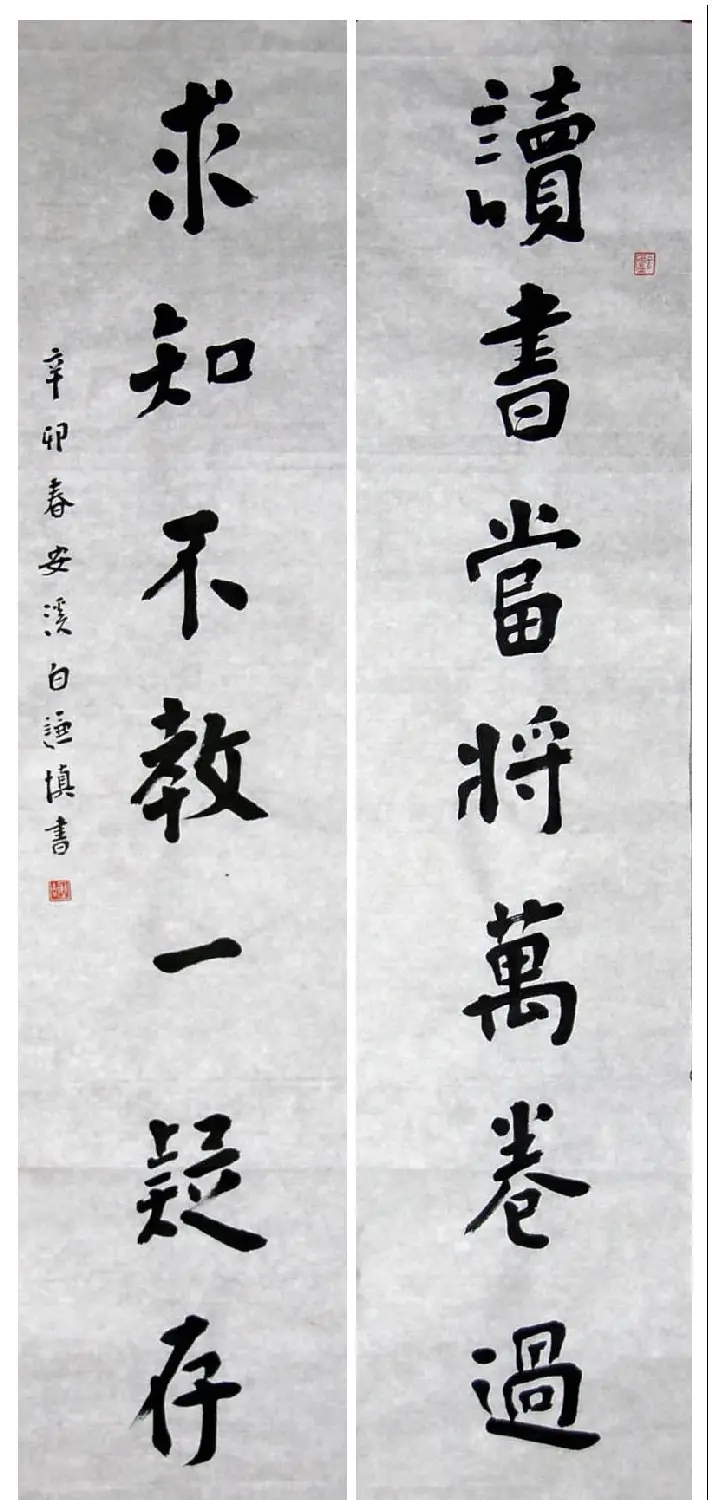 讀書當將萬卷過
求知不教一疑存
辛卯春安溪白謙慎書